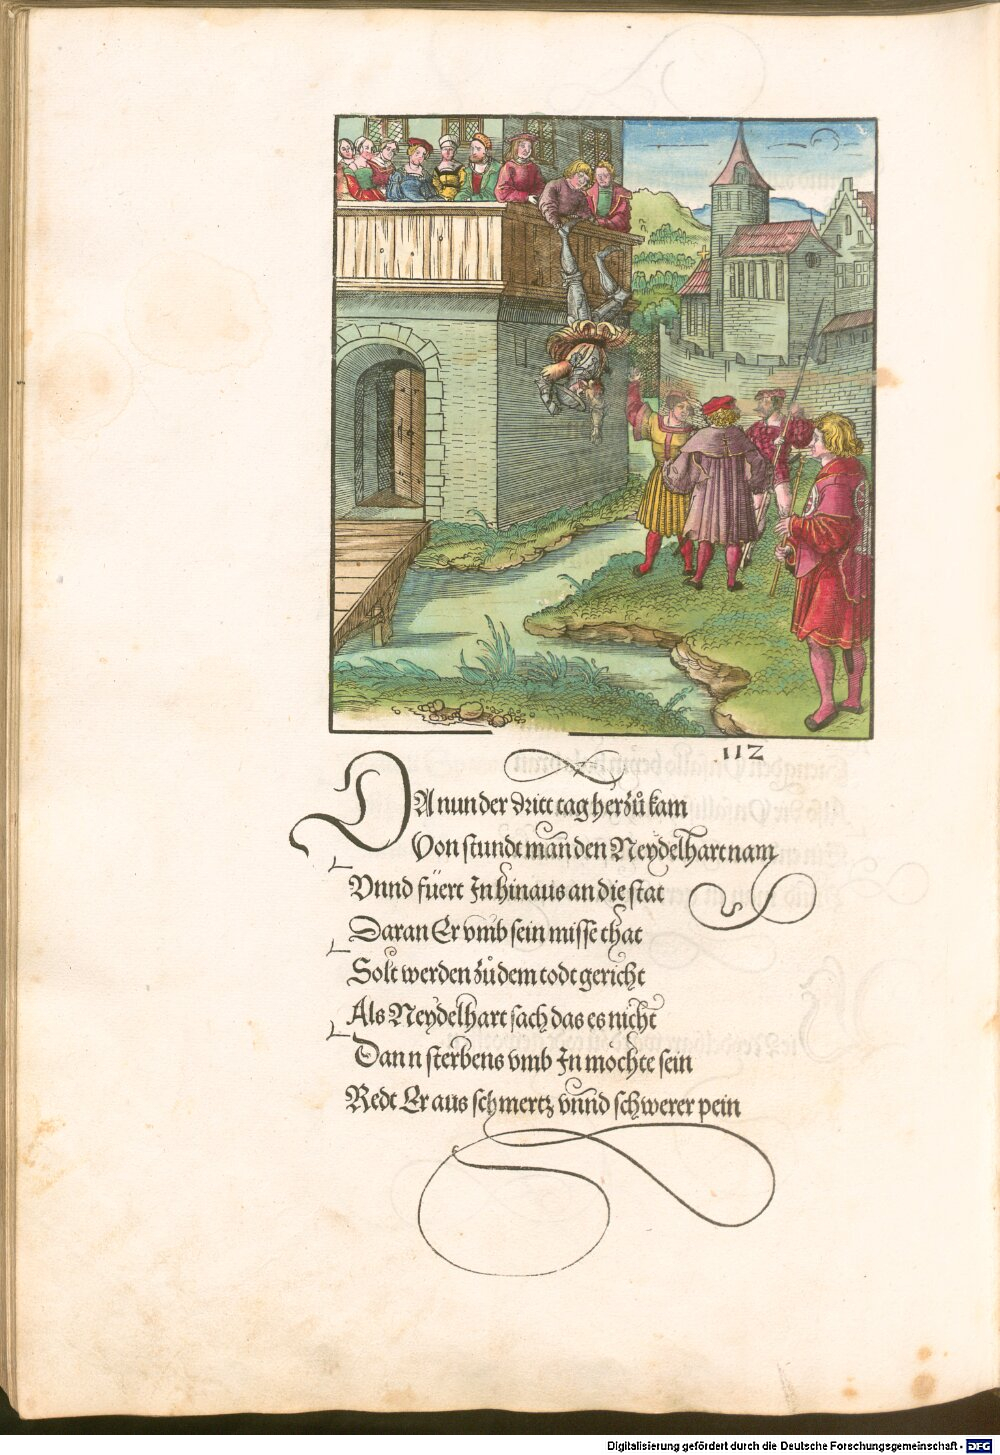 112
DA nun der dritt tag herzů kam
Von stundt man den Neydelhart nam
Vnnd füert In hinaus an die stat
Daran Er vmb sein misse that
Solt werden zů dem todt gericht
Als Neydelhart sach das es nicht
Dann sterbens vmb In mochte sein
Redt Er aus schmertz vnnd schwerer pein
Digitalisierung gefördert durch die Deutsche Forschungsgemeinschaft - DFG